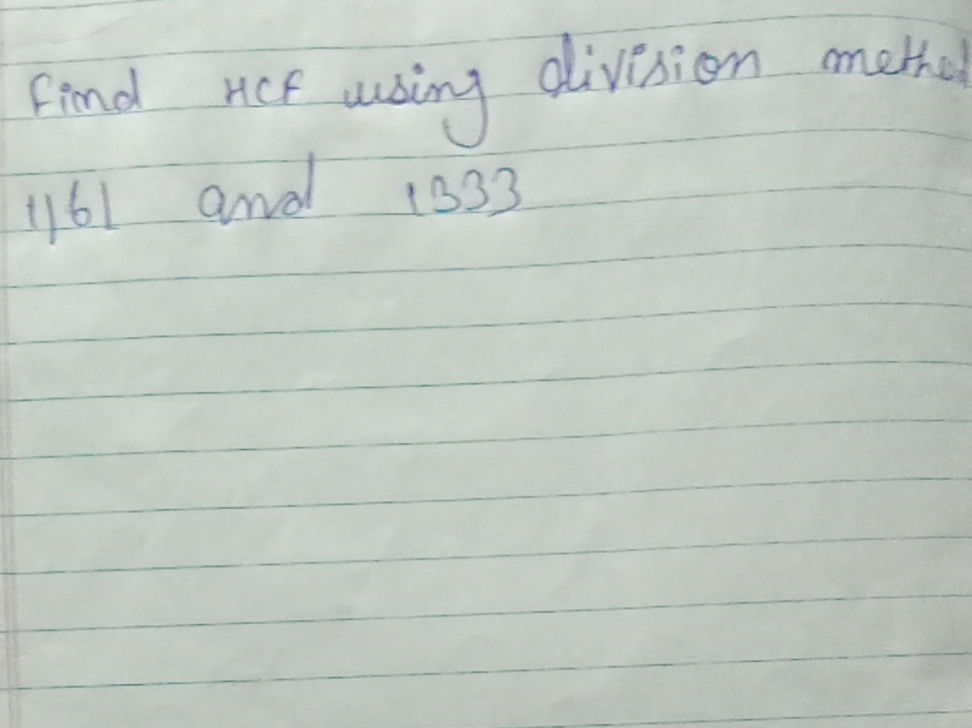 Find HCF using division method
1161 and 1333